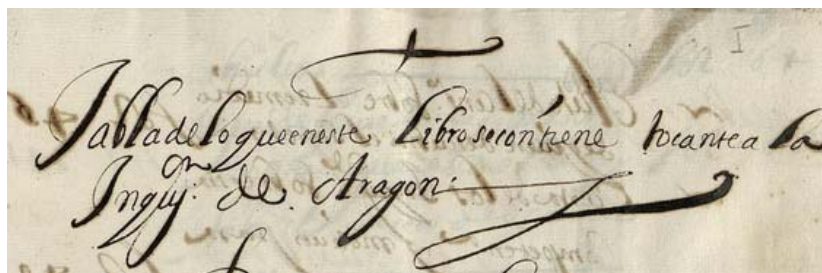 I
Tabla de lo que en este Libro se contiene tocante a la
Inquij.on de Aragon.